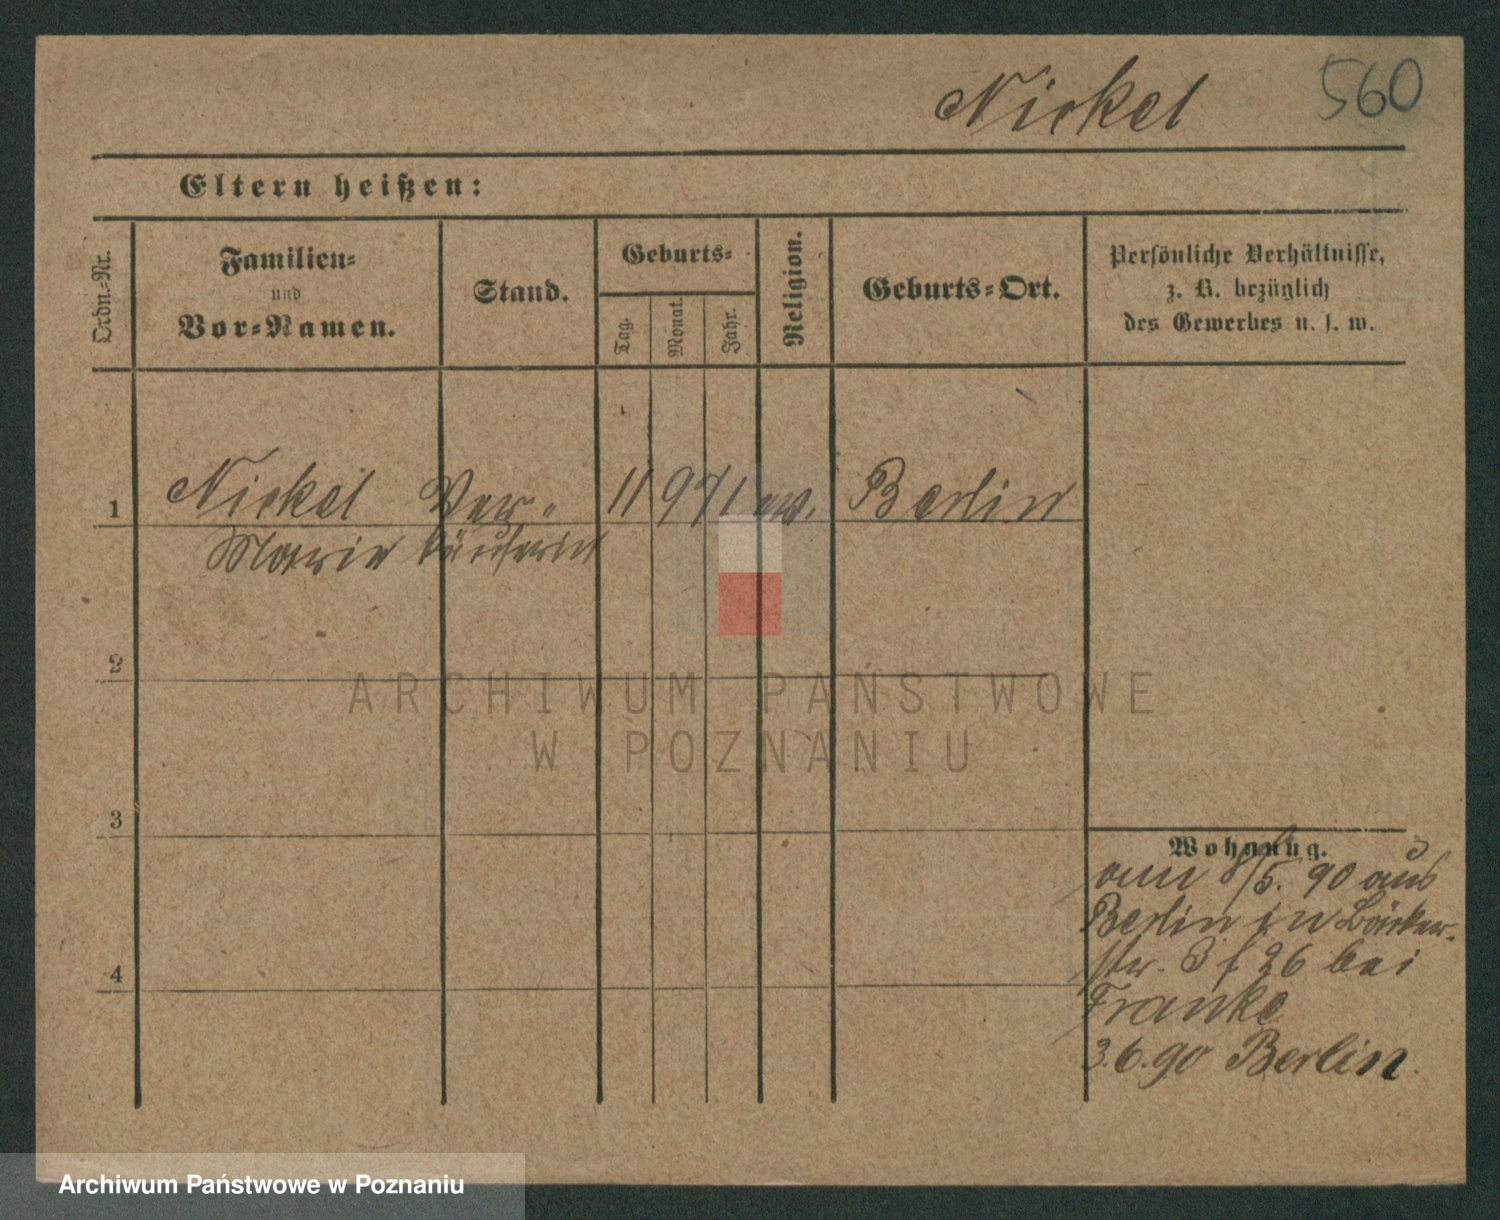 Nickel 560
Eltern heißen:
Ordn.-Nr.
Familien-
und
Vor-Namen.
Stand.
Geburts-
Tag.
Monat.
Jahr.
Religion.
Geburts-Ort.
Persönliche Verhältnisse,
z. B. bezüglich
des Gewerbes u. s. w.
1 Nickel Ver- 11 9 71 ev. Berlin
Marie käuferin
2
3
4
Wohnung.
am /5. 90 aus
Berlin in Bäcker-
str. 26 bei
Franke
3.6.90 Berlin.
ARCHIWUM PAŃSTWOWE
W POZNANIU
Archiwum Państwowe w Poznaniu